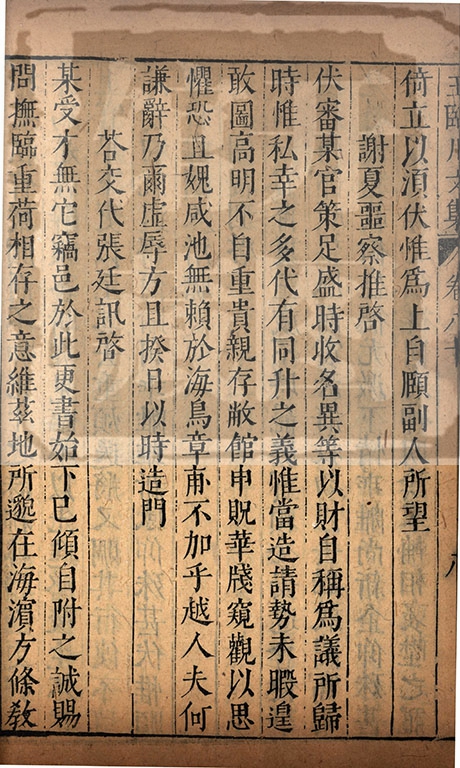 王臨川文集 卷八十 八
倚立以湏伏惟爲上自頥副人所望
謝夏噩察推啓
伏審某官策足盛時收名異等以財自稱爲議所歸
時惟私幸之多代有同升之義惟當造請勢未暇遑
敢圖高明不自重貴親存敝館申貺華牋窺觀以思
懼恐且媿咸池無賴於海鳥章甫不加乎越人夫何
謙辭乃爾虛辱方且揆日以時造門
荅交代張廷訊啓
某受才無它竊邑於此更書始下巳傾自附之誠賜
問撫臨重荷相存之意維茲地所邈在海濵方條敎